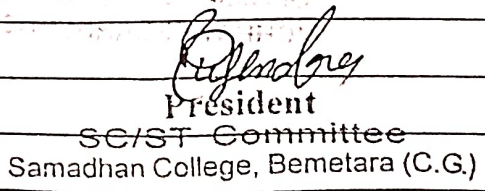 President
SC/ST Committee
Samadhan College, Bemetara (C.G.)